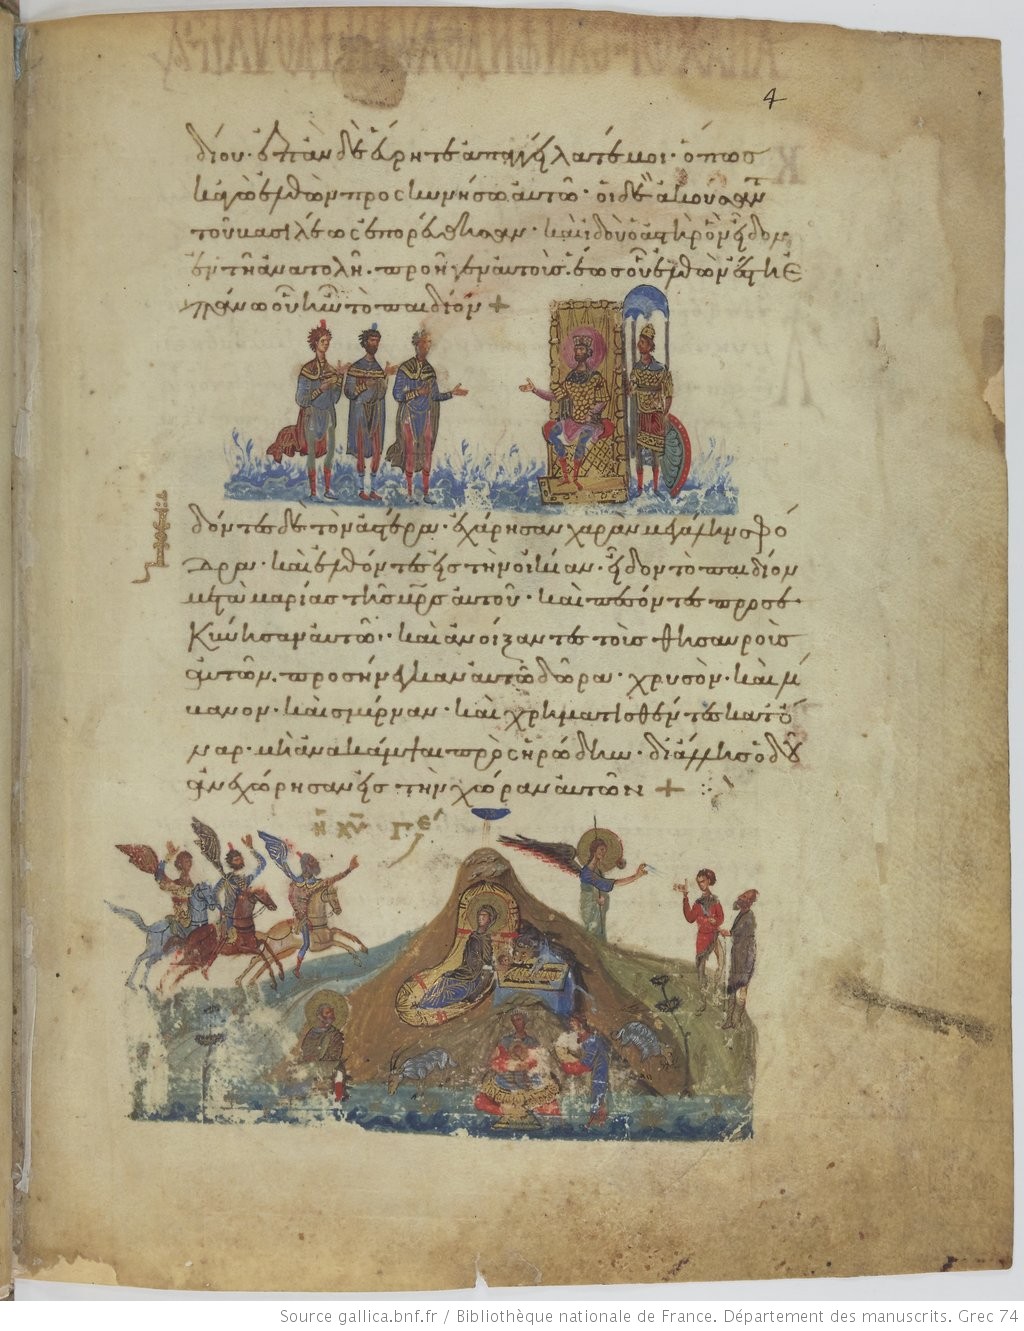 4
δίου· ἐπὰν δὲ εὕρητε ἀπαγγείλατέ μοι· ὅπως
κἀγὼ ἐλθὼν προσκυνήσω αὐτῶ· οἱ δὲ ἀκούσαντ
τοῦ βασιλέως ἐπορεύθησαν· καὶ ἰδοὺ ὁ ἀστὴρ ὃν εἶδον
ἐν τῆ ἀνατολῆ· προῆγεν αὐτοὺς· ἕως οὗ ἐλθὼν ἔστη ἐ
πάνω οὗ ἦν τὸ παιδίον +
δόντες δὲ τὸν ἀστέρα· ἐχάρησαν χαρὰν μεγάλην σφό
δρα· καὶ ἐλθόντες εἰς τὴν οἰκίαν· εἶδον τὸ παιδίον
μετὰ μαρίας τῆς μρς αὐτοῦ· καὶ πεσόντες προσε
κύνησαν αὐτῶ· καὶ ἀνοίξαντες τοὺς θησαυροὺς
αὐτῶν· προσήνεγκαν αὐτῶ δῶρα· χρυσὸν· καὶ λί
βανον· καὶ σμύρναν· καὶ χρηματισθέντες κατ ὄ
ναρ· μὴ ἀνακάμψαι πρὸς ἡρώδην· δι ἄλλης ὁδοῦ
ἀνεχώρησαν εἰς τὴν χώραν αὐτῶν +
ἡ χυ γε
Source gallica.bnf.fr / Bibliothèque nationale de France. Département des manuscrits. Grec 74